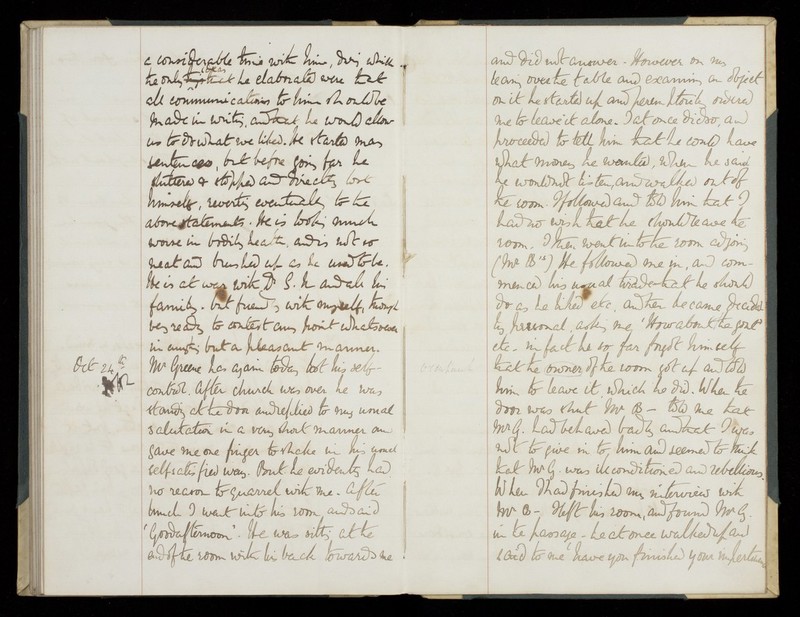 a considerable time with him, during which
he only ideas that he elaborated were that
all communications to him should be
made in writing, and that he would allow
us to do what we liked. He started many
sentences, but before going far he
stuttered & stopped and directly lost
himself, reverting eventually to the
above statements. He is looking much
worse in bodily health, and is not so
neat and brushed up as he used to be.
He is at war with Dr S. N and all his
family. but friendly with myself, though
very ready to contest any point whatsoever
in enmity but a pleasant manner.
Oct 24th
Mr Greene has again today lost his self-
control. After church was over he was
standing at the door and replied to my usual
salutation in a very short manner and
gave me one finger to shake in his usual
selfsatisfied way. But he evidently had
no reason to quarrel with me. After
lunch I went into his room, and said
'Good afternoon'. He was sitting at the
end of the room with his back towards me
and did not answer - However on my
leaning over the table and examining an object
on it he started up and peremptorily ordered
me to leave it alone. I at once did so, and
proceeded to tell him that he could have
what money he wanted, when he said
he would not listen, and walked out of
the room. I followed and told him that I
had no wish that he should leave the
room. I then went into the room adjoining
(Mr B's) He followed me in, and com-
menced his usual tirade that he should
do as he liked etc, and then became decided
ly personal, asking me, 'How about the gout'
etc - in fact he so far forgot himself
that the owner of the room got up and told
him to leave it, which he did. When the
door was shut Mr B - told me that
Mr G. had behaved badly and that I was
not to give in to him and seemed to think
that Mr G. was illconditioned and rebellious.
When I had finished my interview with
Mr B - I left his room, and found Mr G.
in the passage - he at once walked up and
said to me 'have you finished your impertinen